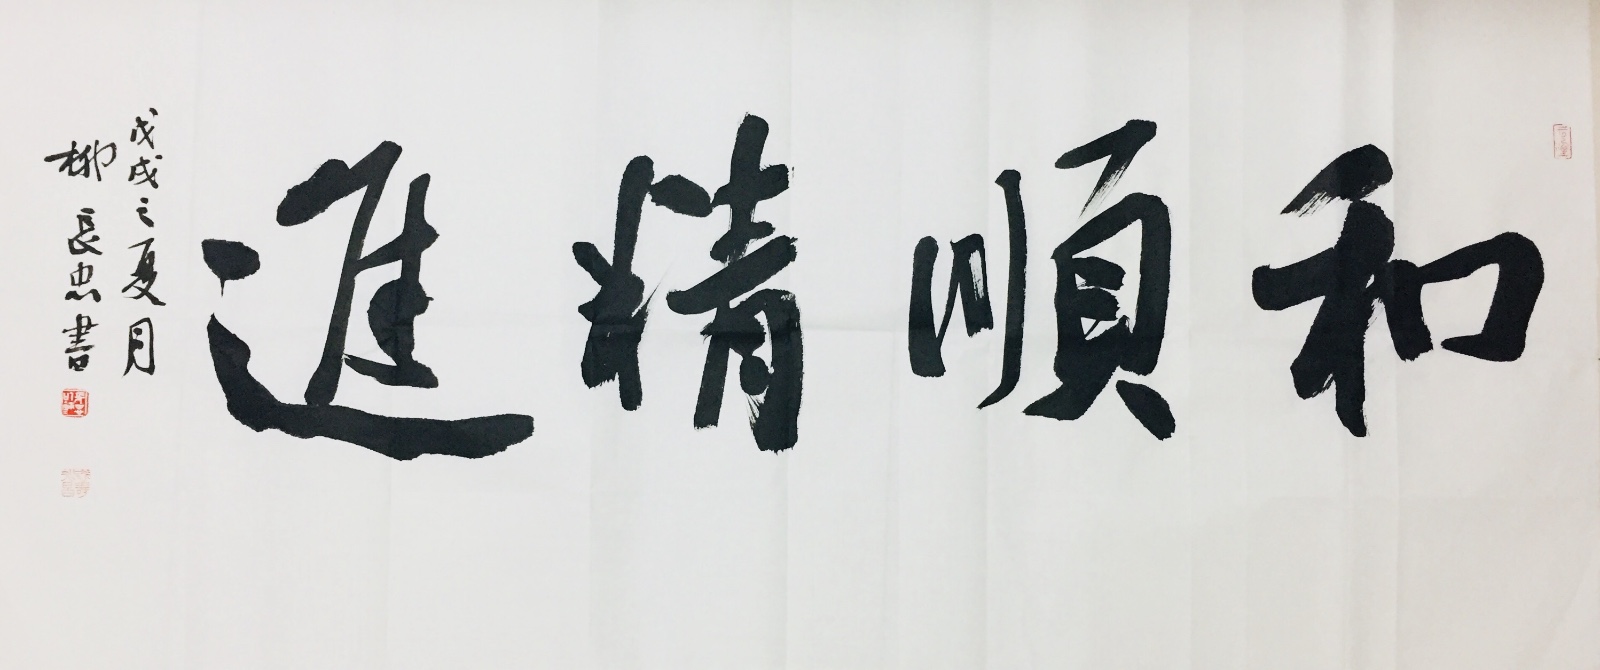 和順精進
戊戌之夏月
柳長忠書